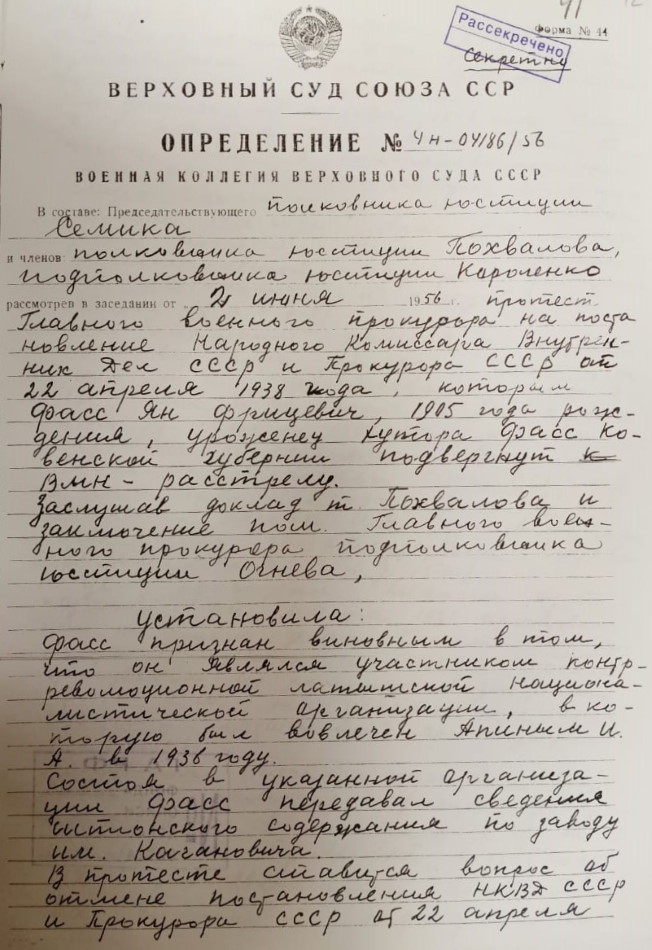 41
12
Рассекречено
Форма № 44
Секретно
ВЕРХОВНЫЙ СУД СОЮЗА ССР
ОПРЕДЕЛЕНИЕ № 4н-04186/56
ВОЕННАЯ КОЛЛЕГИЯ ВЕРХОВНОГО СУДА СССР
В составе: Председательствующего полковника юстиции
Семика
и членов: полковника юстиции Похвалова,
подполковника юстиции Короленко
рассмотрев в заседании от 2 июня 1956 г. протест
Главного военного прокурора на поста
новление Народного Комиссара Внутрен-
них Дел СССР и Прокурора СССР от
22 апреля 1938 года, которым
Фасс Ян Фрицевич, 1905 года рож-
дения, уроженец хутора Фасс Ко-
венской губернии подвергнут к
ВМН - расстрелу.
Заслушав доклад т. Похвалова и
заключение пом. Главного воен-
ного прокурора подполковника
юстиции Огнева,
установила:
Фасс признан виновным в том,
что он являлся участником контр-
революционной латышской национа-
листической организации, в ко-
торую был вовлечен Апиным И.
А. в 1936 году.
Состоя в указанной организа-
ции Фасс передавал сведения
шпионского содержания по заводу
им. Кагановича.
В протесте ставится вопрос об
отмене постановления НКВД СССР
и Прокурора СССР от 22 апреля